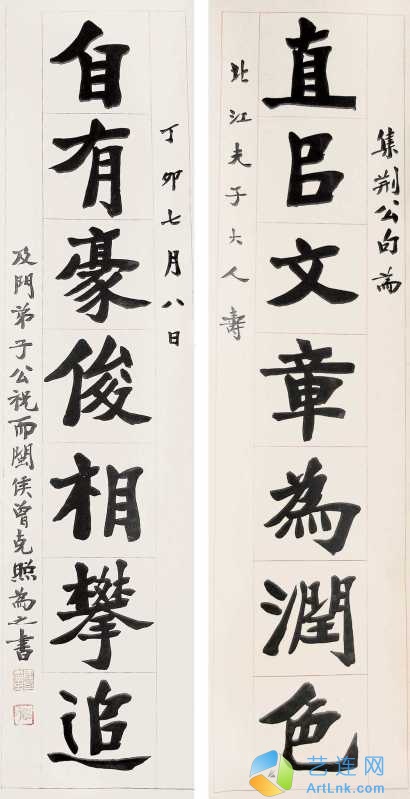 集荆公句為
直㠯文章為潤色
北江夫子大人壽
丁卯七月八日
自有豪俊相攀追
及門弟子公祝而閩侯曾克照為之書
艺连网
ArtLnk.com